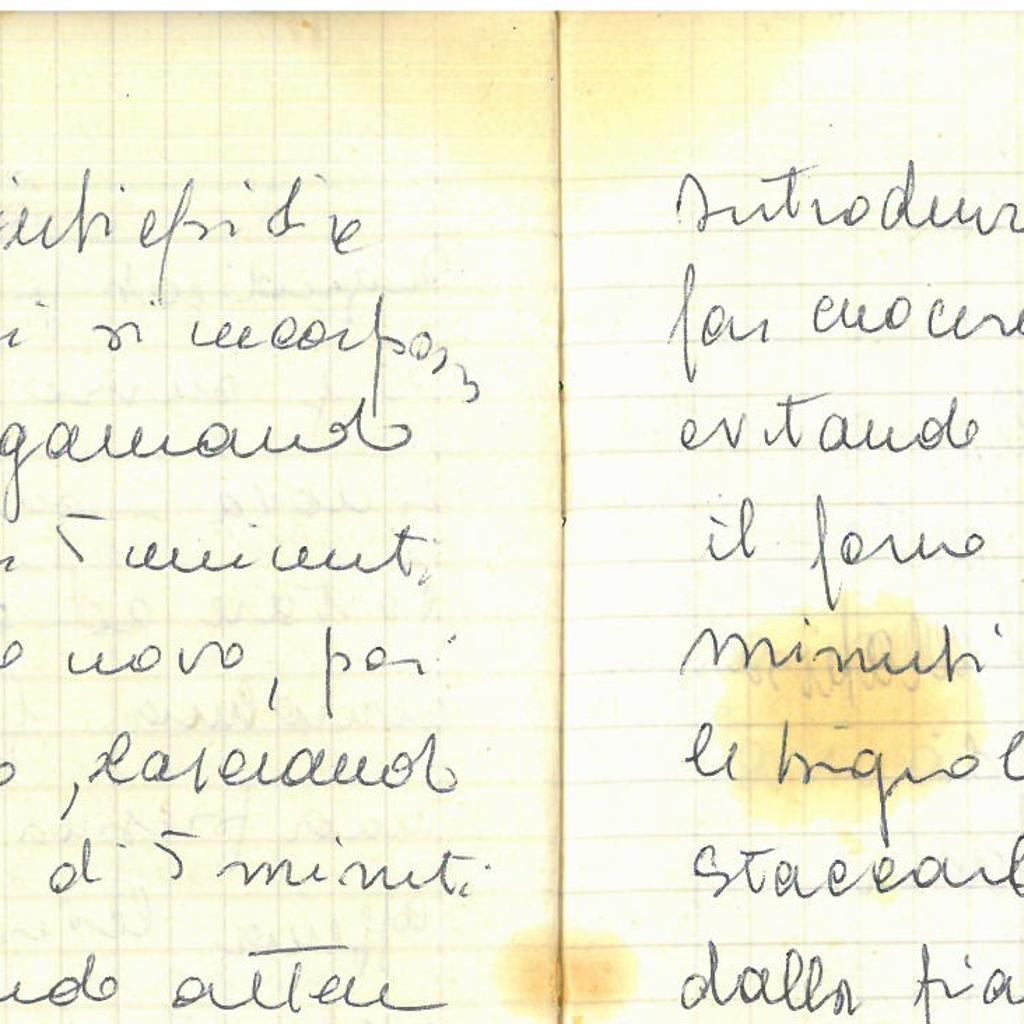 si incorpo
gamando
5 minuti
uovo, poi
, lasciando
di 5 minuti
atten
Introdur
far cuocere
evitando
il forno
minuti
le brignol
staccarl
dalla pia